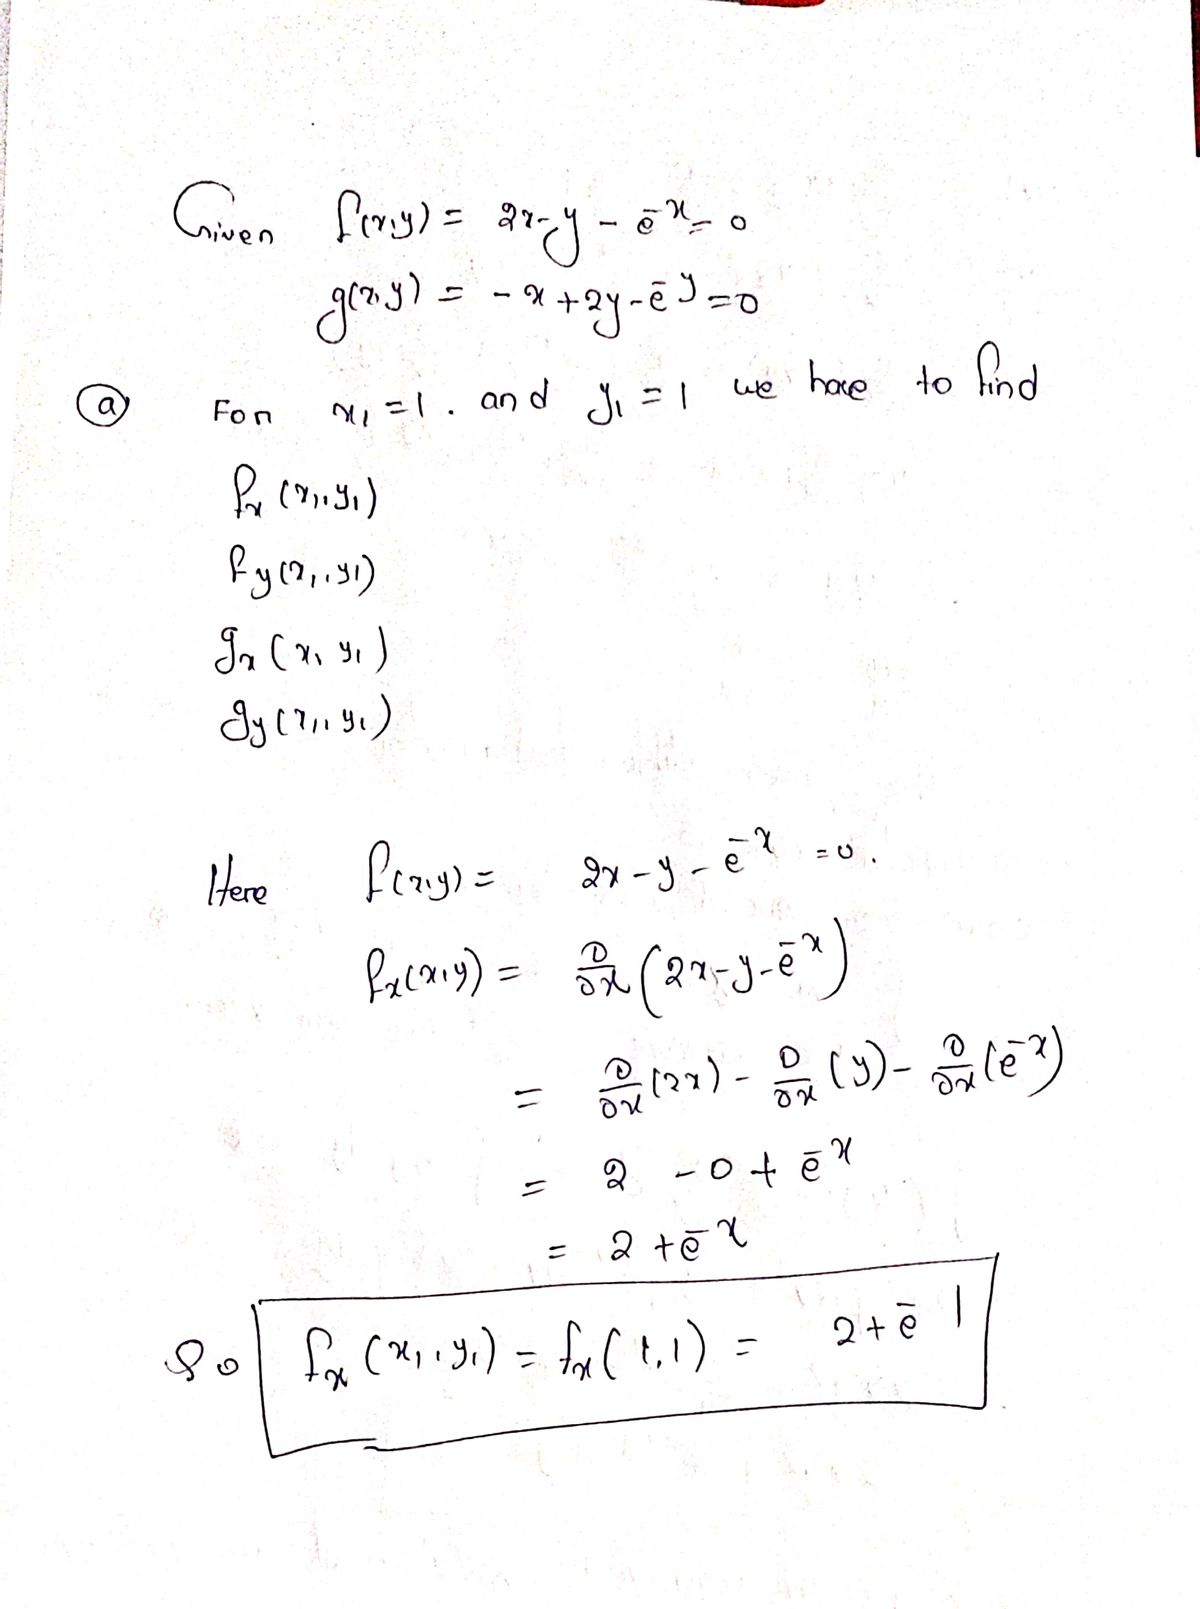 Given f(x,y) = 2x-y - e^-x = 0
g(x,y) = -x+2y-e^-y=0
(a) For x₁=1. and y₁=1 we have to find
fx (x₁,y₁)
fy(x₁,y₁)
gx (x₁ y₁)
gy(x₁,y₁)
Here f(x,y) = 2x-y-e^-x =0.
fx(x,y) = ∂/∂x (2x-y-e^-x)
= ∂/∂x (2x) - ∂/∂x (y) - ∂/∂x (e^-x)
= 2 -0+ e^-x
= 2+e^-x
So fx (x₁,y₁) = fx(1,1) = 2+e^-1